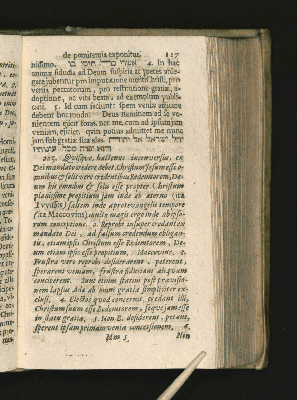 de pœnitentia expositus. 117
nissimo. אשרי כל חוסי בו 4. In hac
animæ fiducia ad Deum suspirat ac preces able-
gare jubentur pro imputatione meriti Christi, pro
venia peccatorum, pro restitutione gratiæ, a-
doptionis, ac vitæ beatæ, ad exemplum publi-
cani. 5. Id cum faciunt: spem veniæ adjicere
debent hoc modo: Deus neminem ad se ve-
nientem ejicit foras, nec me, cum ad ipsum jam
veniam, ejiciet, quin potius admittet me nunc
jam sub gratiæ suæ alas. יחל ישראל אל יהוה
והוא יפדה מכל עונותיו
203. Quisque, hactenus inconversus, ex
Dei mandato credere debet, Christum se suum esse o-
mnibus & solis vere credentibus Redemtorem, De-
um his omnibus & solis esse propter Christum
planissime propitium jam inde ab æterno (ita
Twissus) saltem inde a protevangelii tempore
(ita Maccovius) multis magis ergo inde ab ipso-
rum conceptione. 2. Reprobi insuper credunt ex
mandato Dei, ad falsum credendum obligan-
tur, etiam ipsis Christum esse Redemtorem, De-
um etiam ipsis esse propitium, Maccovius. 3.
Frustra vero reprobi desiderarent, peterent,
sperarent veniam, frustra fiduciam aliquam
conciperent. Sunt enim statim post prævisa-
rum lapsus Adæ ab omni gratia simpliciter ex-
clusi. 4. Electos quod concernit, credant illi,
Christum suum esse Redemtorem, seque jam esse
in statu gratiæ. 5. Non E. desiderent, petant,
sperent ipsam primam veniæ concessionem. 6.
Hm 3 Non